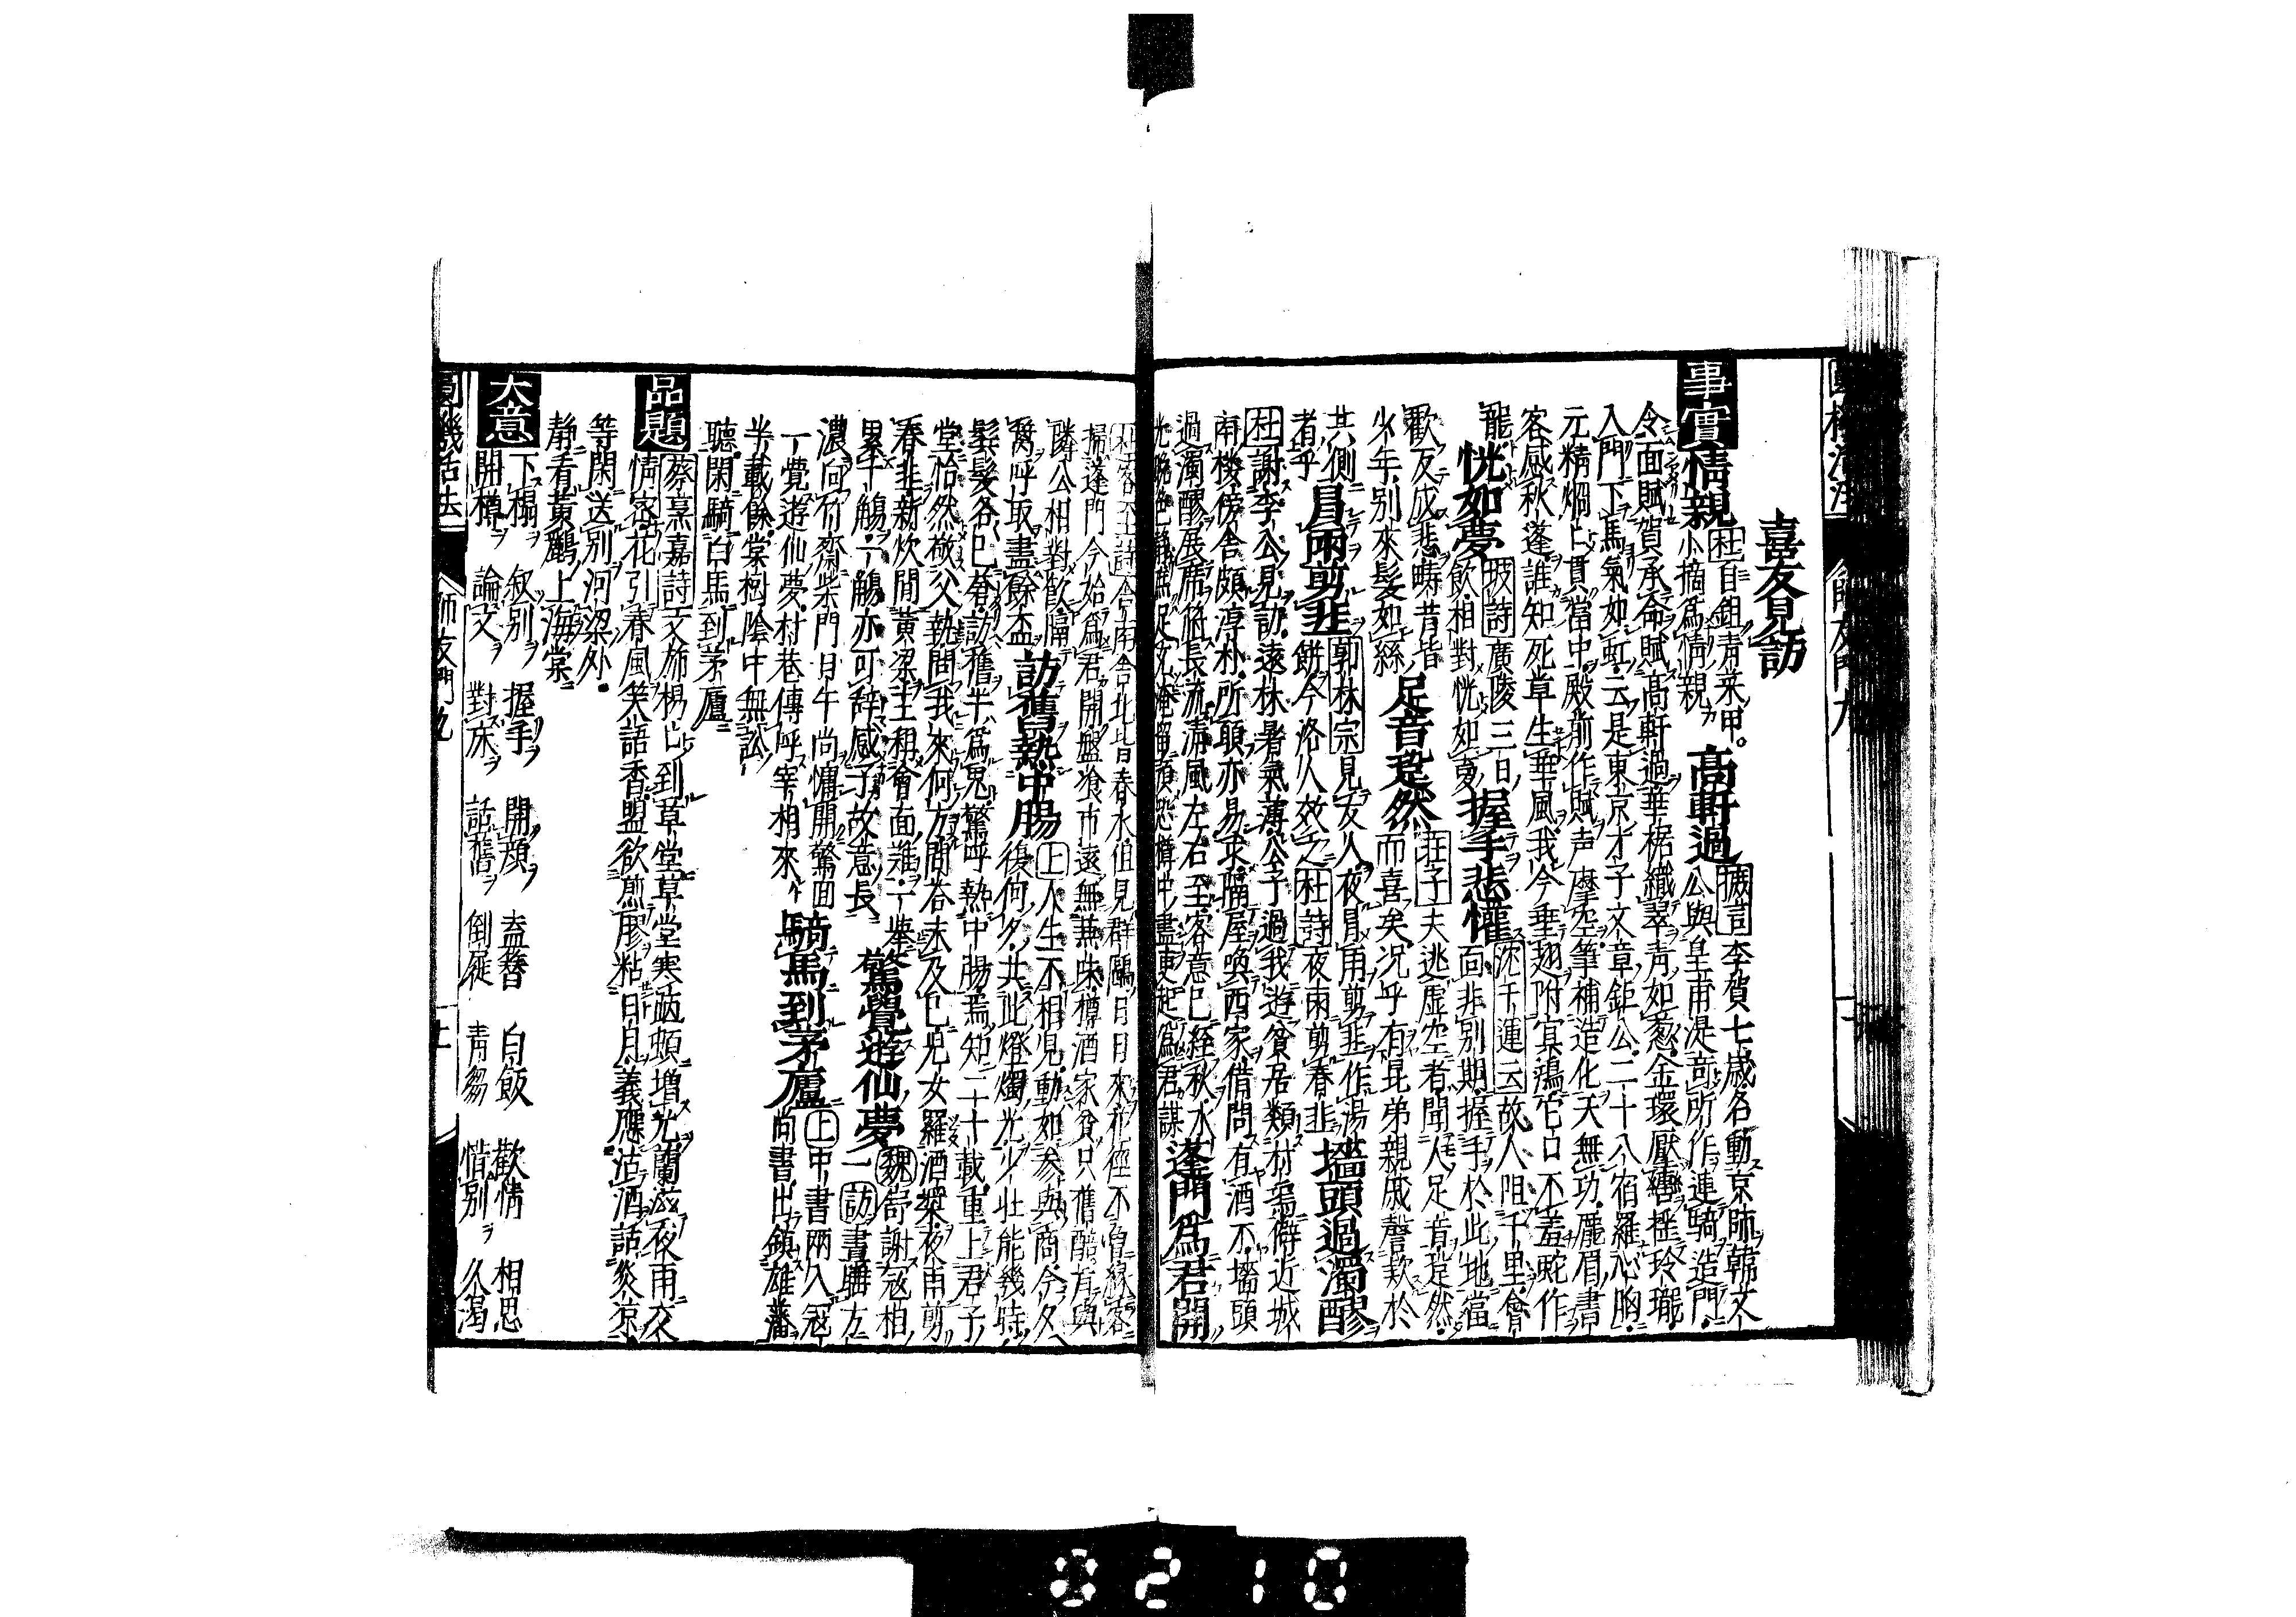 喜友見訪
事實 情親 杜 自鉏青菜甲。小摘爲情親 高軒過 摭言 李賀七歲名動京師韓文公與皇甫湜竒所作連騎造門
令面賦賀承命賦高軒過華裾織翠青如葱金環壓轡揺玲瓏
入門下馬氣如虹云是東京才子文章鉅公二十八宿羅心胸
元精烱烱貫當中殿前作賦声摩空筆補造化天無功厖眉書
客感秋蓬誰知死草生華風我今垂翅附冥鴻它日不羞蛇作
龍 恍如夢 坡詩 廣陵三日飲相對恍如夢 握手悲懽 沈千運云 故人阻千里會面非別期握手於此地當
歡反成悲疇昔皆少年別來髮如絲 足音跫然 莊子 夫逃虛空者聞人足音跫然而喜矣况乎有昆弟親戚謦欬於
其側者乎 冒雨剪韭 郭林宗 見友人夜冒雨剪韭作湯餅今洛人效之 杜詩 夜雨剪春韭 墻頭過濁醪
杜 謝李公見訪遠林暑氣薄公子過我遊貧居類村塢僻近城
南樓傍舍頗淳朴所願亦易求隔屋喚西家借問有酒不墻頭
過濁醪展席俯長流清風左右至客意已經秋水 蓬門爲君開
杜客至詩 舍南舍北皆春水但見群鷗日日來花徑不曾縁客
掃蓬門今始爲君開盤飡市遠無兼味樽酒家貧只舊醅肯與
隣公相對飲隔籬呼取盡餘盃 訪舊熱中腸 上 人生不相見動如參與商今夕復何夕共此燈燭光少壯能幾時
鬂髮各已蒼訪舊半爲鬼驚呼熱中腸焉知二十載重上君子
堂怡然敬父執問我來何方問答未及已兒女羅酒漿夜雨剪
春韭新炊間黃梁主稱會面難一舉累十觴十觴亦可辞感子故意長 驚覺遊仙夢 魏 㝢謝冦相一 訪 晝睡方
濃向竹齋柴門日午尚慵開驚面一覺遊仙夢村巷傳呼宰相來 騎馬到茅廬 上 中書兩入冦尚書出鎭雄藩
半載餘棠樹陰中無訟聽閑騎白馬到茅廬
品題 蔡熹嘉詩 文斾楊楊到草堂草堂寒陋頓増光蘭滋夜雨交情密花引春風笑語香盟欲煎膠粘日月義應沽酒話炎涼
等閑送別河梁外
靜看黃鸝上海棠
大意 下榻 叙別 握手 開顔 盍簪 白飯 歡情 相思
開樽 論文 對床 話舊 倒屣 青芻 惜別 久渴
圓機活法 師友門九